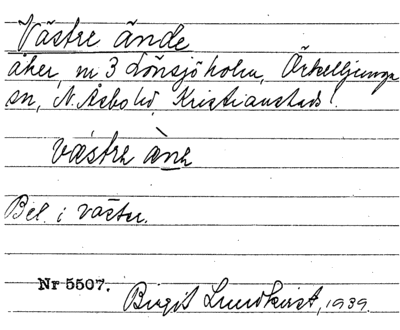 Västre ände
åker, nr 3 Lönsjöholm, Örkelljunga
sn, N. Åsbo hd, Kristianstads l.
væstrə ànə
Bel. i väster.
Nr 5507.
Birgit Lundkvist, 1939.